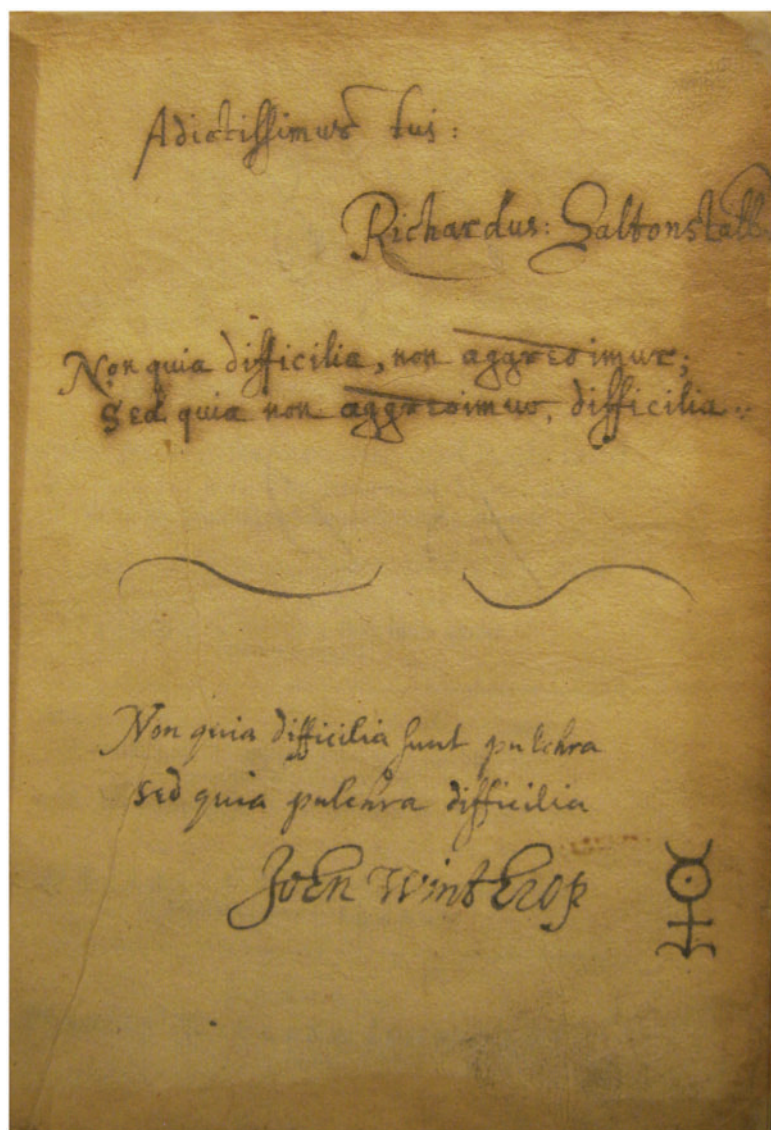 Adictissimus tui:
Richardus: Saltonstall.
Non quia difficilia, non aggredimur;
Sed quia non aggredimur, difficilia.
Non quia difficilia sunt pulchra
sed quia pulchra difficilia
John Winthrop